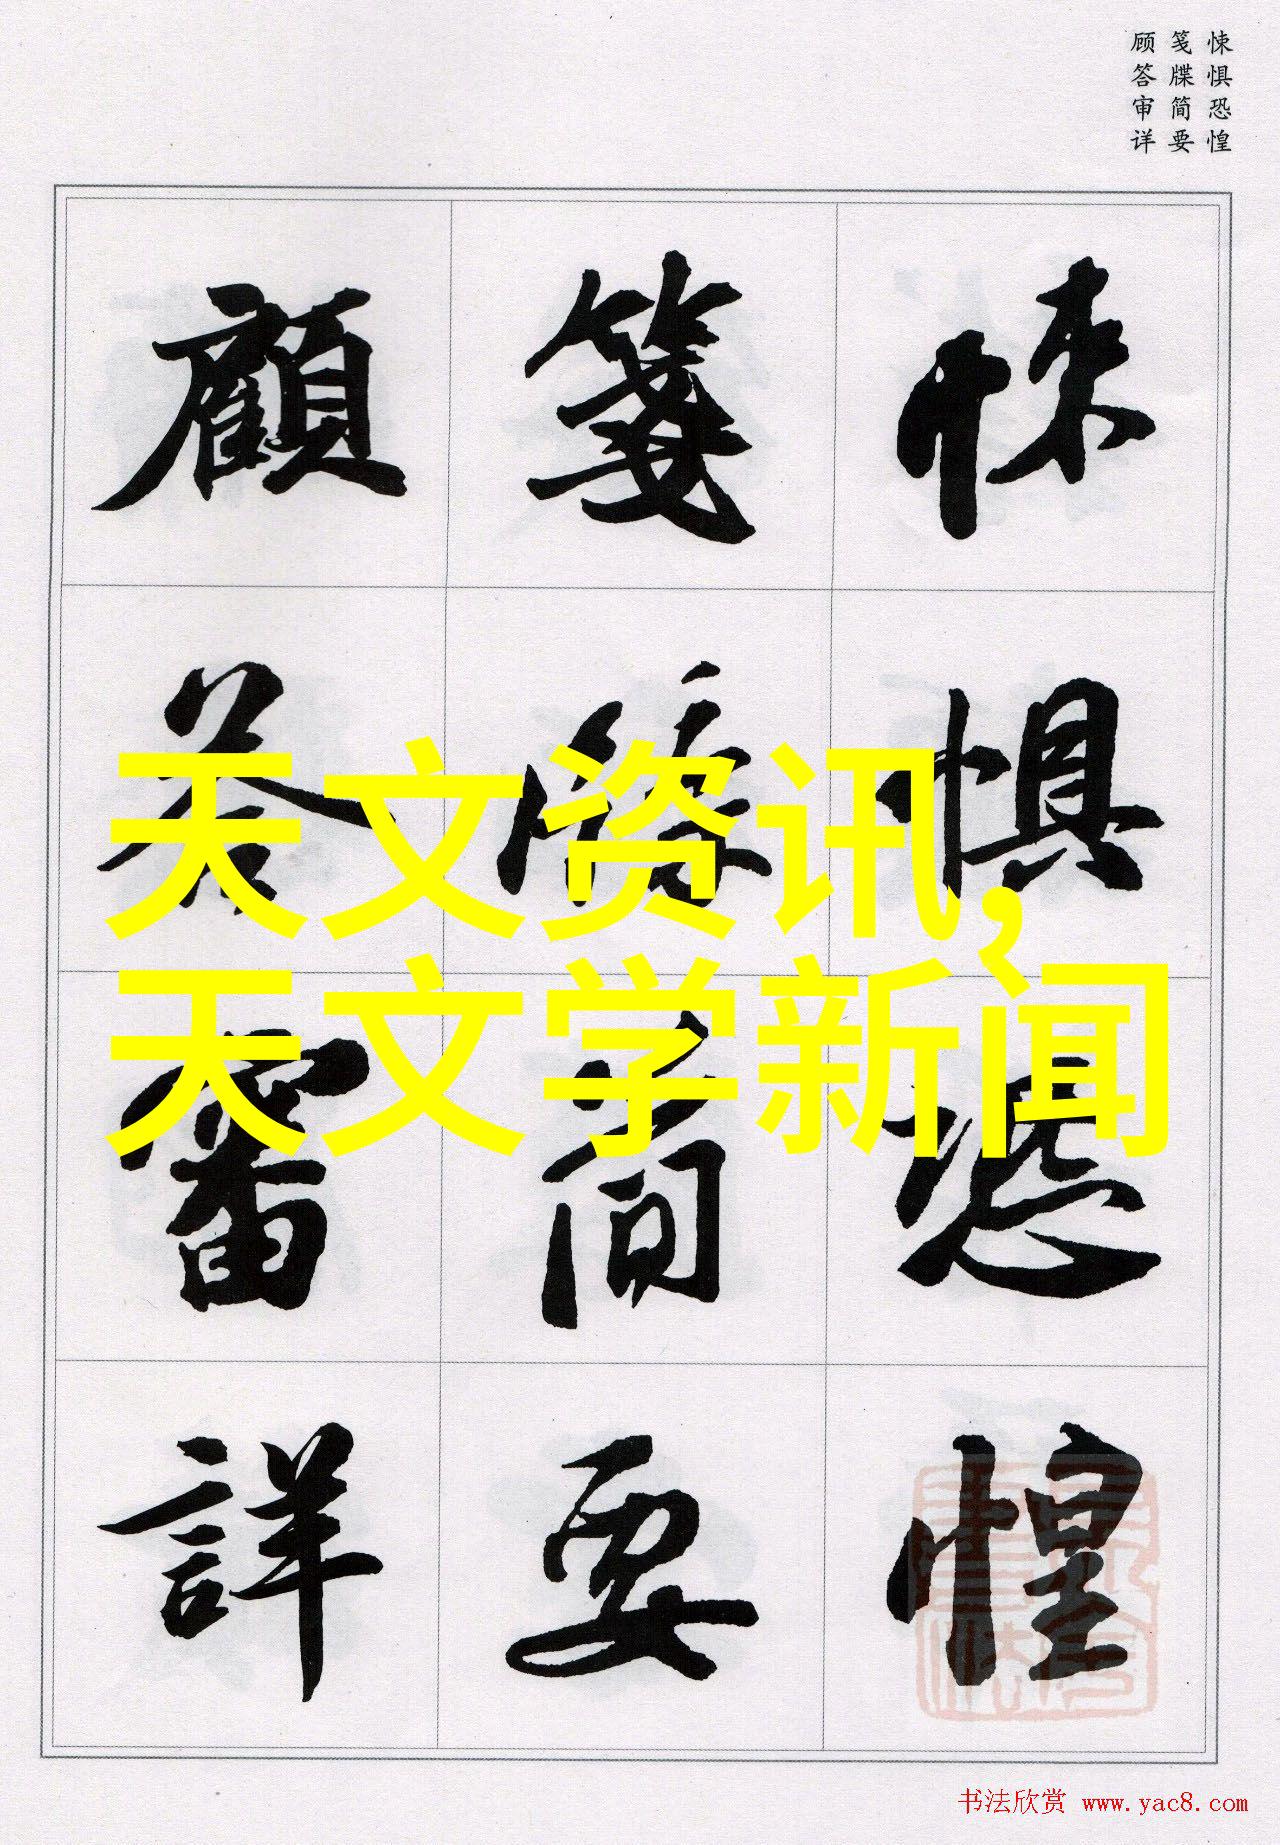 悚惧恐惶
笺牒简要
顾答审详
悚懼恐惶
箋牒簡要
顧答審詳
天文资讯,
天文学新闻
书法欣赏 www.yac8.com